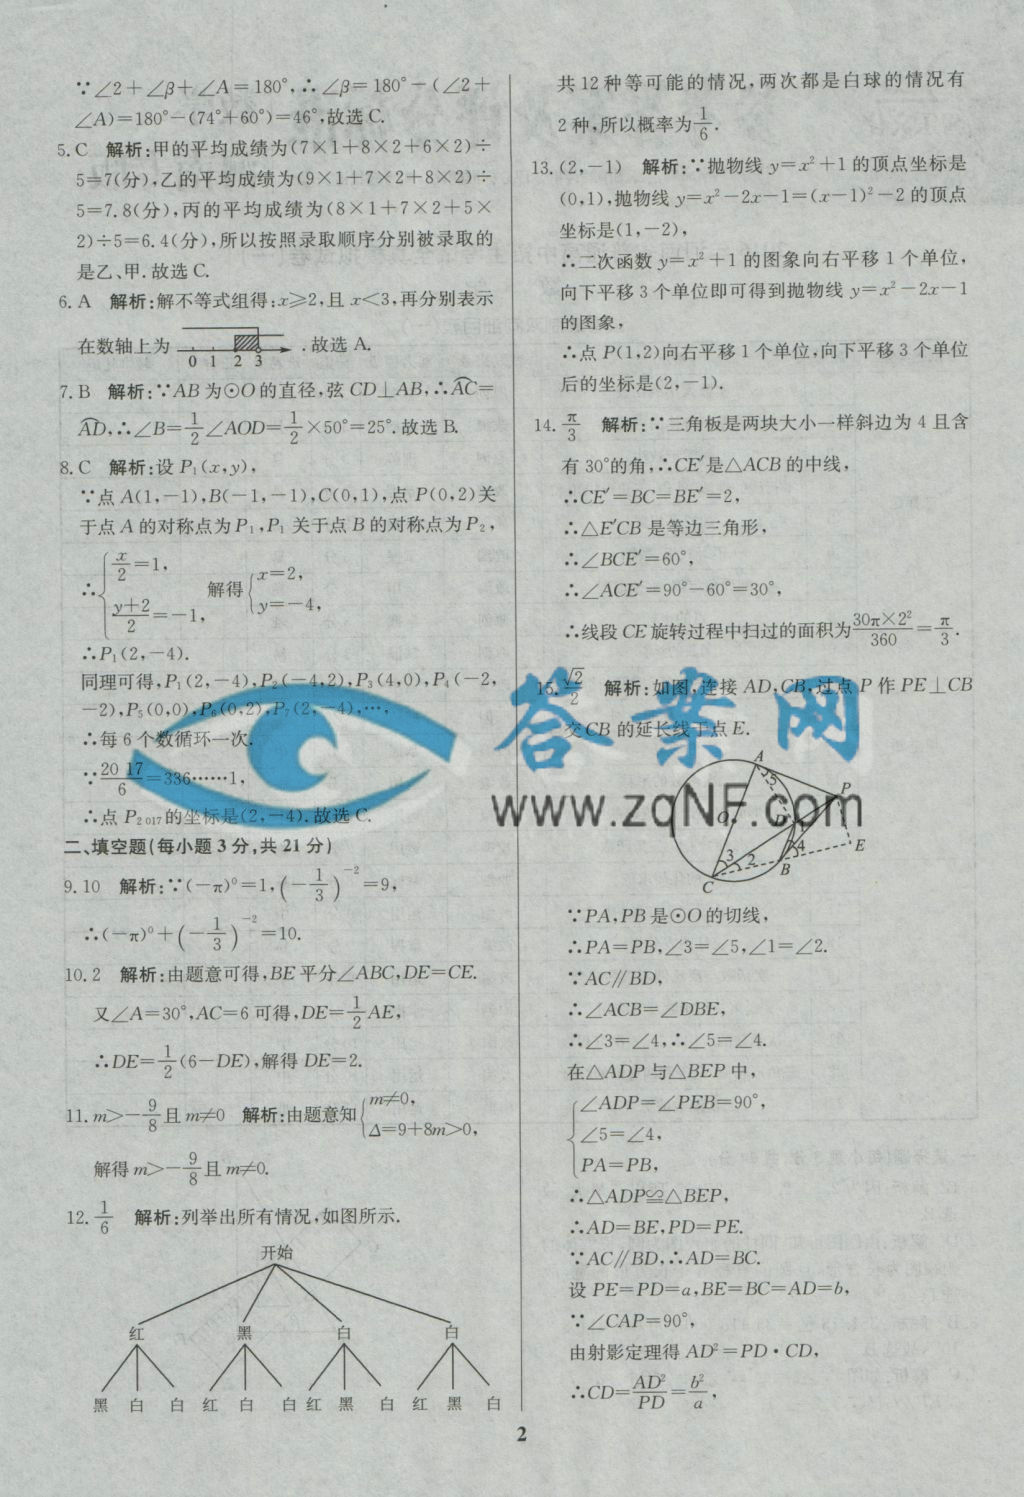 ∵∠2+∠β+∠A=180°,∴∠β=180°-(∠2+
∠A)=180°-(74°+60°)=46°,故选C.
5.C 解析:甲的平均成绩为(7×1+8×2+6×2)÷
5=7(分),乙的平均成绩为(9×1+7×2+8×2)÷
5=7.8(分),丙的平均成绩为(8×1+7×2+5×
2)÷5=6.4(分),所以按照录取顺序分别被录取的
是乙、甲.故选C.
6.A 解析:解不等式组得:x≥2,且x<3,再分别表示
在数轴上为 0 1 2 3 .故选A.
7.B 解析:∵AB为⊙O的直径,弦CD⊥AB,∴⌒AC=
⌒AD,∴∠B=1/2∠AOD=1/2×50°=25°.故选B.
8.C 解析:设P₁(x,y),
∵点A(1,-1),B(-1,-1),C(0,1),点P(0,2)关
于点A的对称点为P₁,P₁关于点B的对称点为P₂,
∴{x/2=1, (y+2)/2=-1, 解得{x=2, y=-4,
∴P₁(2,-4).
同理可得,P₁(2,-4),P₂(-4,2),P₃(4,0),P₄(-2,
-2),P₅(0,0),P₆(0,2),P₇(2,-4),…,
∴每6个数循环一次.
∵2017/6=336……1,
∴点P₂₀₁₇的坐标是(2,-4).故选C.
二、填空题(每小题3分,共21分)
9.10 解析:∵(-π)⁰=1,(-1/3)⁻²=9,
∴(-π)⁰+(-1/3)⁻²=10.
10.2 解析:由题意可得,BE平分∠ABC,DE=CE.
又∠A=30°,AC=6可得,DE=1/2AE,
∴DE=1/2(6-DE),解得DE=2.
11.m>-9/8且m≠0 解析:由题意知{m≠0, Δ=9+8m>0,
解得m>-9/8且m≠0.
12.1/6 解析:列举出所有情况,如图所示.
开始
红 黑 白 白
黑 白 白 红 白 白 红 黑 白 红 黑 白
共12种等可能的情况,两次都是白球的情况有
2种,所以概率为1/6.
13.(2,-1) 解析:∵抛物线y=x²+1的顶点坐标是
(0,1),抛物线y=x²-2x-1=(x-1)²-2的顶点
坐标是(1,-2),
∴二次函数y=x²+1的图象向右平移1个单位,
向下平移3个单位即可得到抛物线y=x²-2x-1
的图象,
∴点P(1,2)向右平移1个单位,向下平移3个单位
后的坐标是(2,-1).
14.π/3 解析:∵三角板是两块大小一样斜边为4且含
有30°的角,∴CE′是△ACB的中线,
∴CE′=BC=BE′=2,
∴△E′CB是等边三角形,
∴∠BCE′=60°,
∴∠ACE′=90°-60°=30°,
∴线段CE旋转过程中扫过的面积为30π×2²/360=π/3.
15.√2/2 解析:如图,连接AD,CB,过点P作PE⊥CB
交CB的延长线于点E.
答案网
www.zqNF.com
A
5
P
O
D
1
3
2
4
E
B
C
∵PA,PB是⊙O的切线,
∴PA=PB,∠3=∠5,∠1=∠2.
∵AC∥BD,
∴∠ACB=∠DBE,
∴∠3=∠4,∴∠5=∠4.
在△ADP与△BEP中,
{∠ADP=∠PEB=90°,
∠5=∠4,
PA=PB,
∴△ADP≌△BEP,
∴AD=BE,PD=PE.
∵AC∥BD,∴AD=BC.
设PE=PD=a,BE=BC=AD=b,
∵∠CAP=90°,
由射影定理得AD²=PD·CD,
∴CD=AD²/PD=b²/a,
2